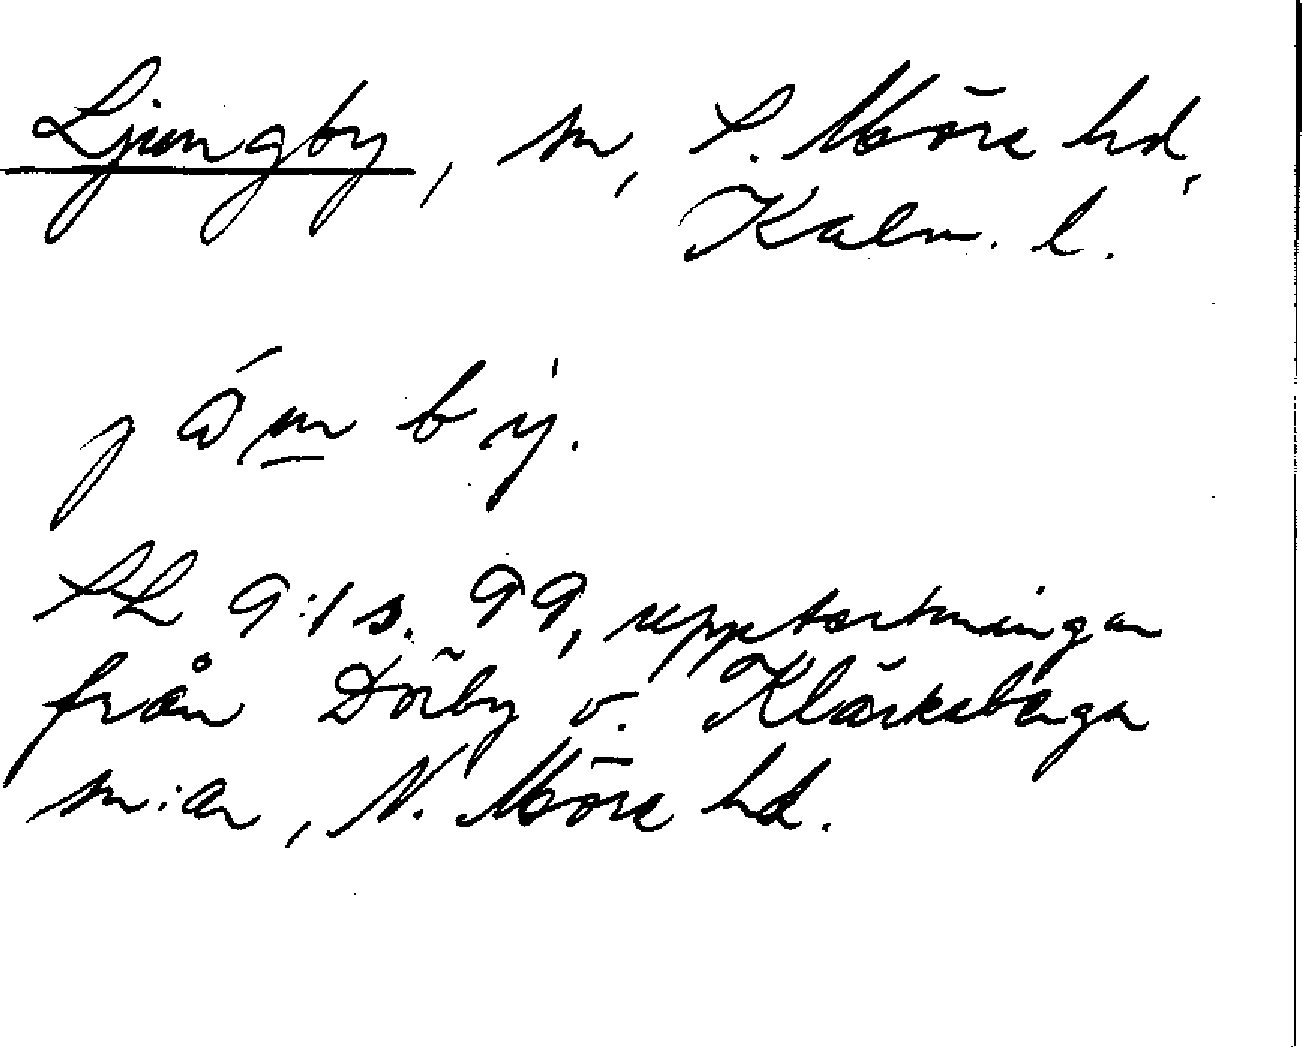 Ljungby, sn, S. Möre hd,
Kalm. l.
SL 9:1 s. 99, uppteckningar
från Dörby o. Kläckeberga
sn:ar, N. Möre hd.